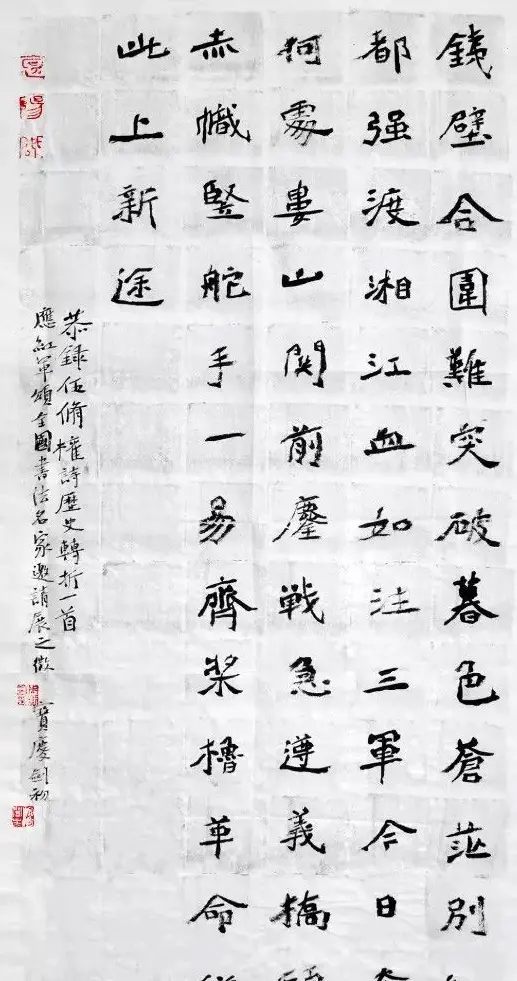 鐵壁合圍難突破暮色蒼茫別
都强渡湘江血如注三軍今日
何處婁山關前鏖戰急遵義犒
赤幟豎舵手一易齊槳櫓革命
此上新途
恭錄伍脩權詩歷史轉折一首
應紅軍頌全國書法名家邀請展之徵 寶慶劍初